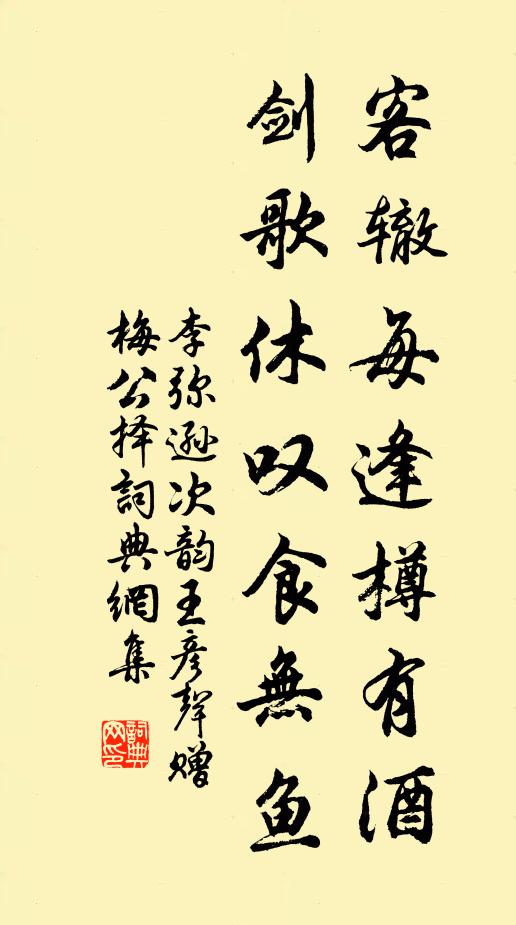 客辙每逢樽有酒
剑歌休叹食無鱼
李弥逊次韵王彦聲赠
梅公择詞典網集
詞典网印